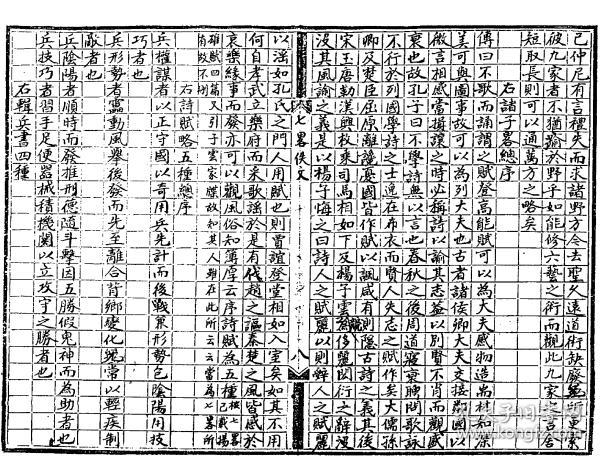 已仲尼有言禮失而求諸野方今去聖久遠道術缺廢無所更索
彼九家者不猶瘉於野乎如能修六藝之術而觀此九家之言舍
短取長則可以通萬方之略矣
右諸子畧總序
傳曰不歌而誦謂之賦登高能賦可以為大夫感物造耑材知深
美可與圖事故可以為列大夫也古者諸侯卿大夫交接鄰國以
微言相感當揖讓之時必稱詩以諭其志蓋以別賢不肖而觀盛
衰也故孔子曰不學詩無以言也春秋之後周道寖衰聘問歌詠
不行於列國學詩之士逸在布衣而賢人失志之賦作矣大儒孫
卿及楚臣屈原離讒憂國皆作賦以諷咸有惻隱古詩之義其後
宋玉唐勒漢興枚乘司馬相如下及楊子雲競為侈麗閎衍之辭漫
沒其風諭之義是以楊子悔之曰詩人之賦麗以則辭人之賦麗
七畧佚文
八
以淫如孔氏之門人用賦也則賈誼登堂相如入室矣如其不用
何自孝武立樂府而采歌謠於是有代趙之謳秦楚之風皆感於
哀樂緣事而發亦可以觀風俗知簿厚云序詩賦為五種
雄賦四篇又引子雲家牒故如其人雖在此所云云當為七畧所
有故不刪
右詩賦畧五種總序
兵權謀者以正守國以奇用兵先計而後戰兼形勢包陰陽用技
巧者也
兵形勢者靁動風舉後發而先至離合背鄉變化無常以輕疾制
敵者也
兵陰陽者順時而發推刑德隨斗擊因五勝假鬼神而為助者也
兵技巧者習手足便器械積機關以立攻守之勝者也
右輯兵書四種